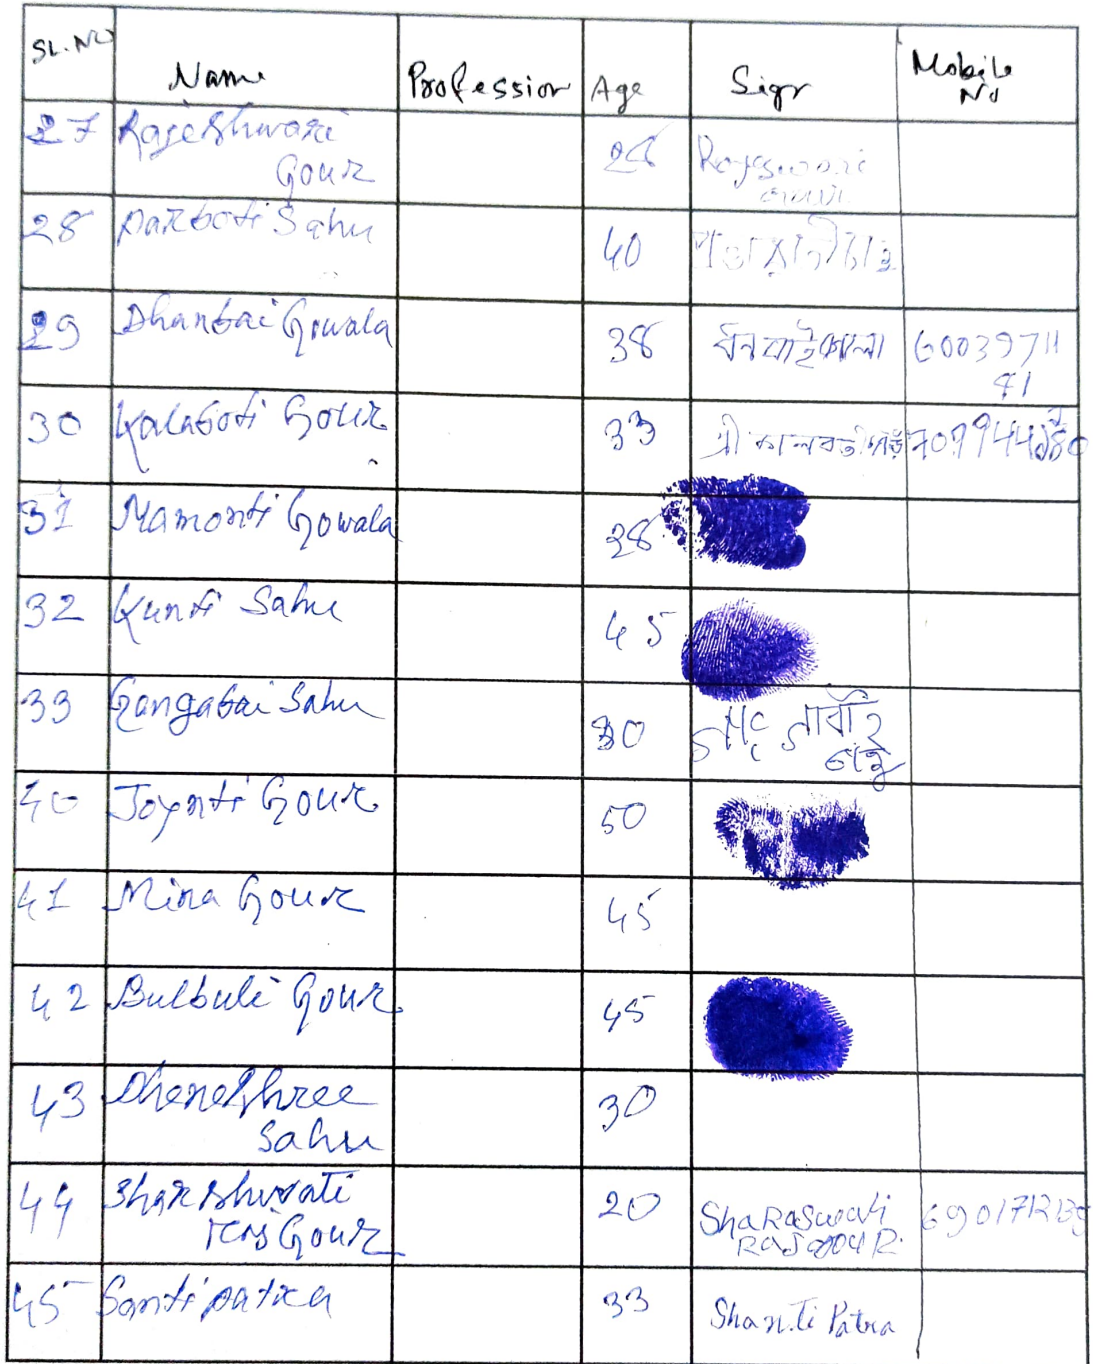 SL. No Name Profession Age Sign Mobile No
27 Rajeshwari Gour 28
28 Parboti Sahu 40
29 Dhanbai Gowala 38 ধনবাই 60039711
41
30 Kalaboti Gour 33 শ্রী
31 Mamonti Gowala 28
32 Kunti Sahu 45
33 Gangabai Sahu 30
40 Joynti Gour 50
41 Mina Gour 45
42 Bulbuli Gour 45
43 Dheneshree
Sahu 30
44 Sharshwati
Raj Gour 20 ShaRaswati
RajgouR.
45 Santi patra 33 Shanti Patra